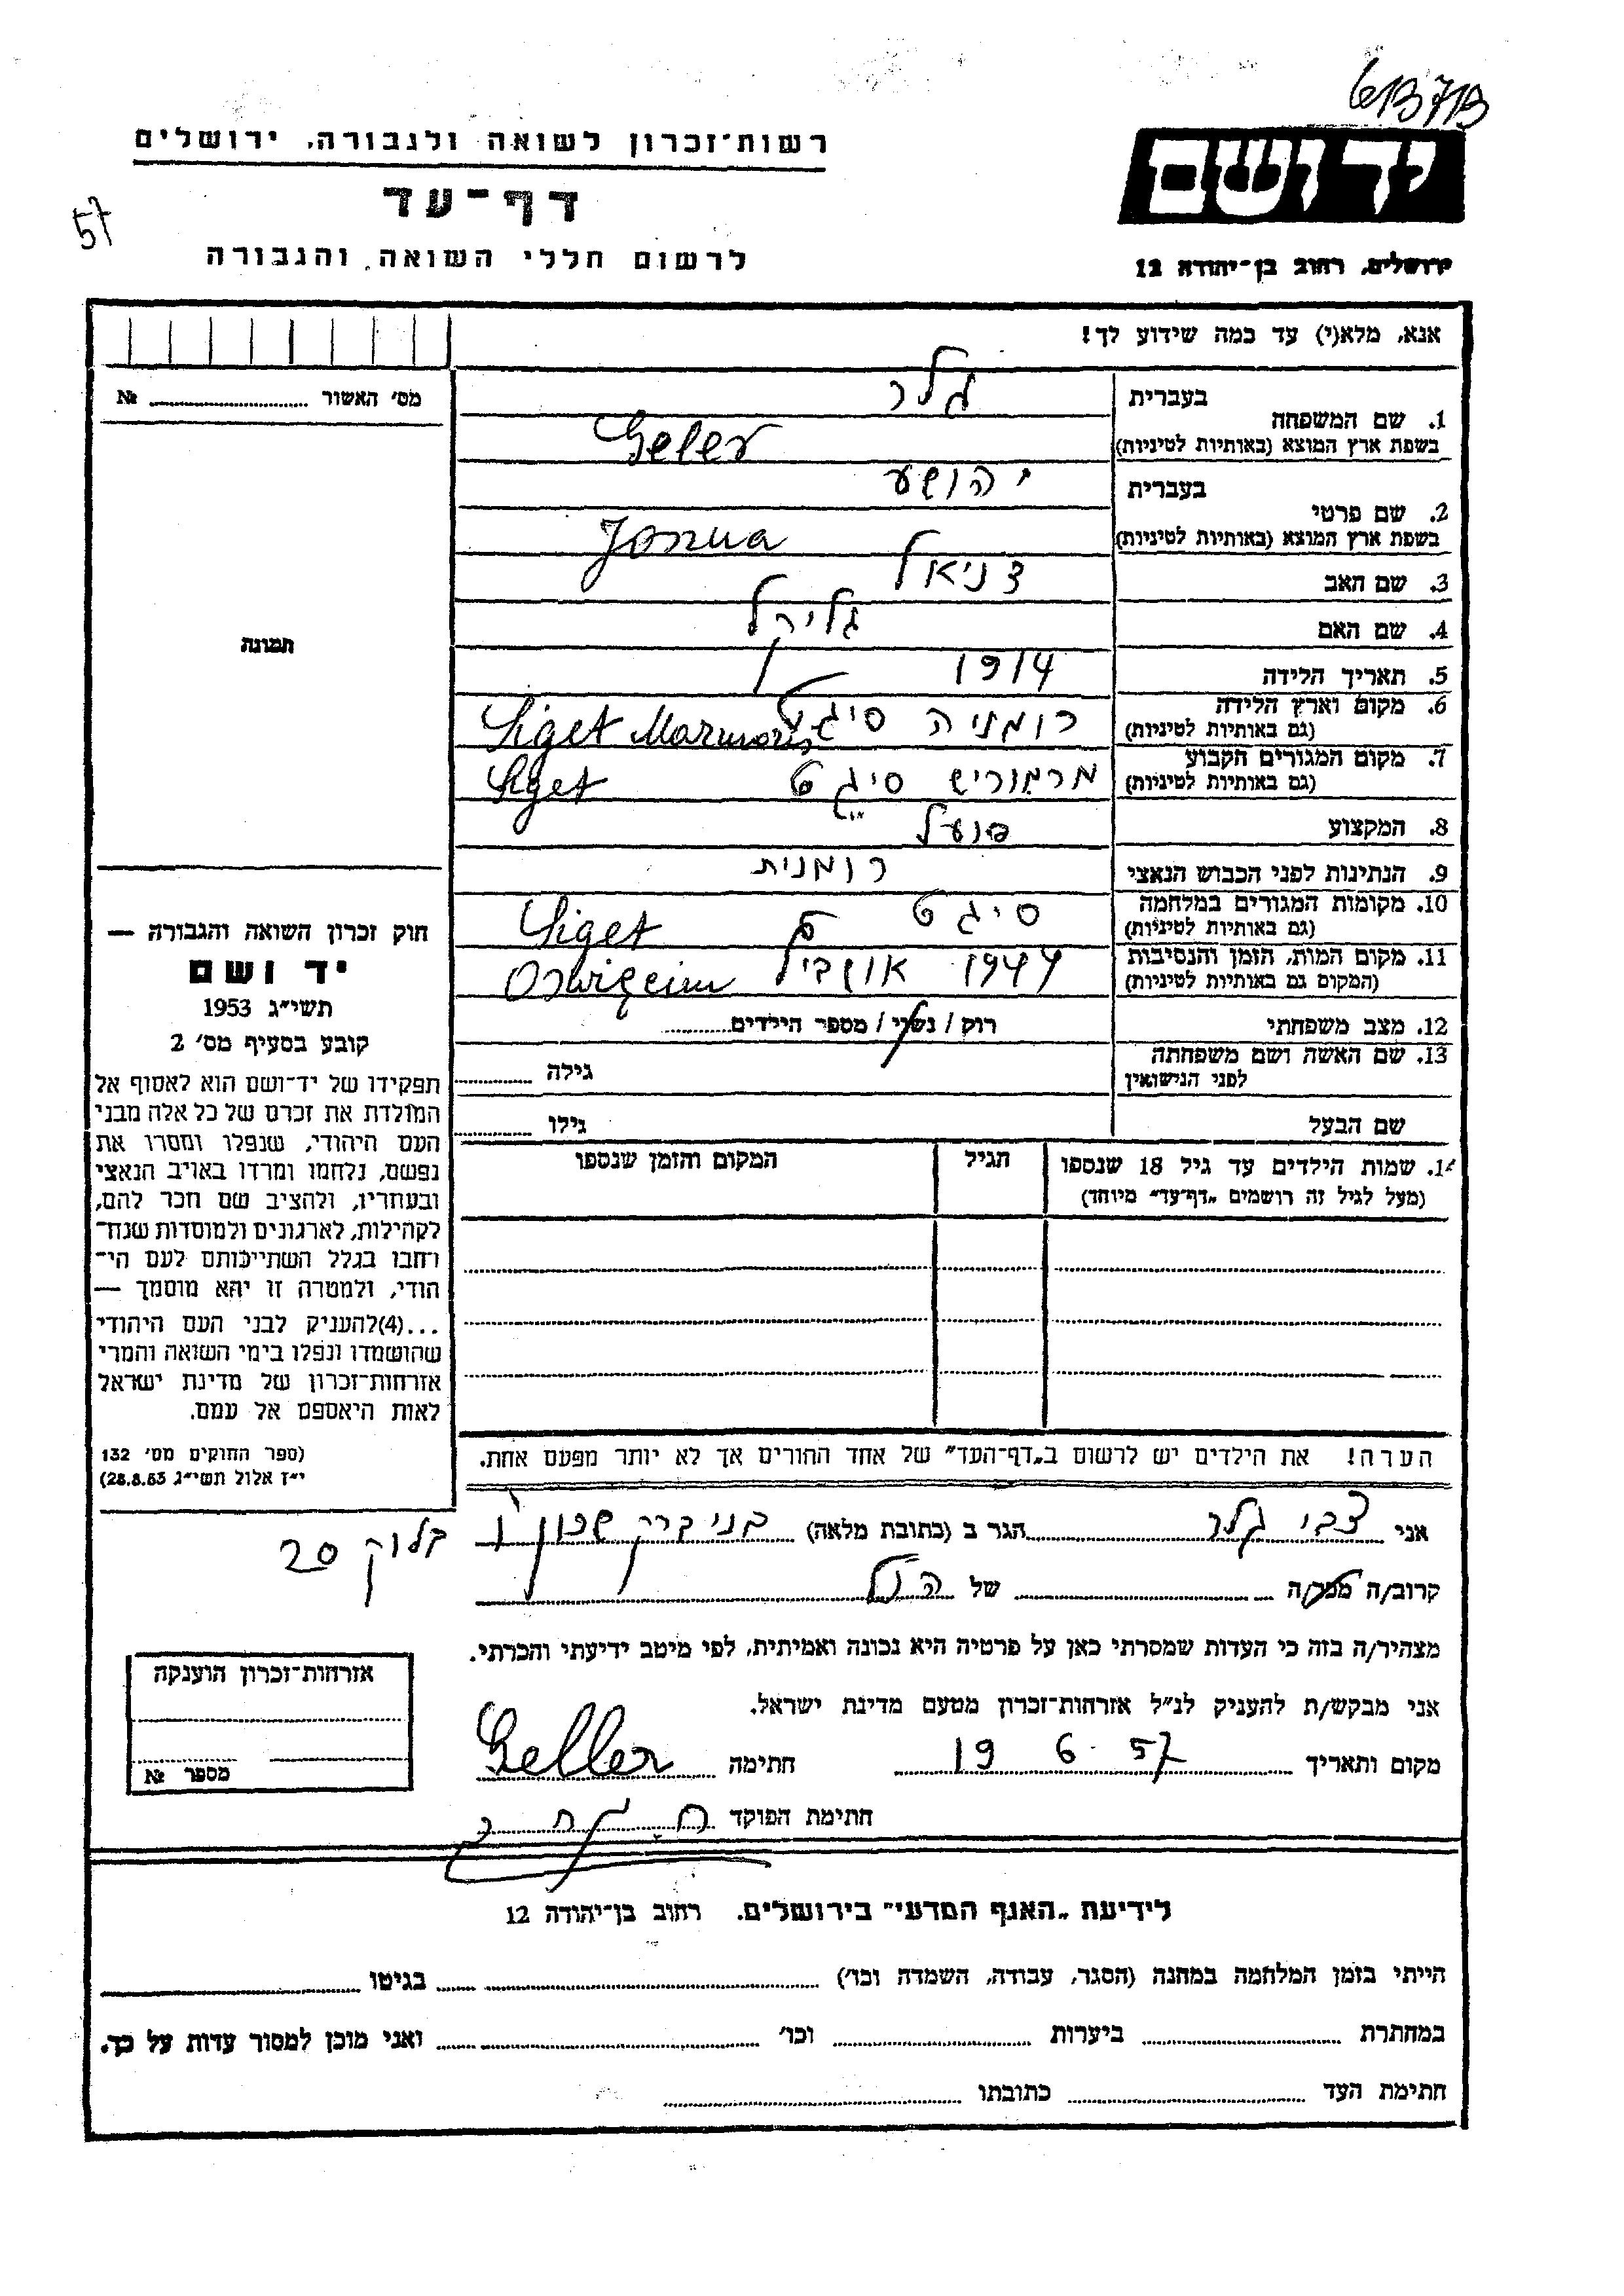 6137B
רשות־זכרון לשואה ולגבורה, ירושלים
יד ושם
דף־עד
57
לרשום חללי השואה והגבורה
ירושלים, רחוב בן־יהודה 12
אנא, מלא(י) עד כמה שידוע לך!
מס׳ האשור ........ №
תמונה
בעברית גלר
1. שם המשפחה
בשפת ארץ המוצא (באותיות לטיניות) Geler
בעברית יהושע
2. שם פרטי
בשפת ארץ המוצא (באותיות לטיניות) Josua
3. שם האב דניאל
4. שם האם גליקל
5. תאריך הלידה 1914
6. מקום וארץ הלידה רומניה סיגט Siget Marmoris
(גם באותיות לטיניות)
7. מקום המגורים הקבוע מרמוריש סיגט Siget
(גם באותיות לטיניות)
8. המקצוע פועל
9. הנתינות לפני הכבוש הנאצי רומנית
10. מקומות המגורים במלחמה סיגט Siget
(גם באותיות לטיניות)
11. מקום המות, הזמן והנסיבות 1944 Oswięcim
(המקום גם באותיות לטיניות)
12. מצב משפחתי רוק / נשוי / מספר הילדים........
13. שם האשה ושם משפחתה גילה ........
לפני הנישואין
שם הבעל גילו ........
14. שמות הילדים עד גיל 18 שנספו הגיל המקום והזמן שנספו
(מעל לגיל זה רושמים „דף־עד״ מיוחד)
חוק זכרון השואה והגבורה —
יד ושם
תשי״ג 1953
קובע בסעיף מס׳ 2
תפקידו של יד־ושם הוא לאסוף אל
המולדת את זכרם של כל אלה מבני
העם היהודי, שנפלו ומסרו את
נפשם, נלחמו ומרדו באויב הנאצי
ובעוזריו, ולהציב שם וזכר להם,
לקהילות, לארגונים ולמוסדות שנח־
רחבו בגלל השתייכותם לעם הי־
הודי, ולמטרה זו יהא מוסמך —
...(4)להעניק לבני העם היהודי
שהושמדו ונפלו בימי השואה והמרי
אזרחות־זכרון של מדינת ישראל
לאות היאספם אל עמם.
(ספר החוקים מס׳ 132
י״ז אלול תשי״ג 28.8.53)
הערה! את הילדים יש לרשום ב„דף־העד״ של אחד ההורים אך לא יותר מפעם אחת.
אני צבי גלר הגר ב (כתובת מלאה) בני ברק שכון ו בלוק 20
קרוב/ה מכר/ה ........ של הנ״ל
מצהיר/ה בזה כי העדות שמסרתי כאן על פרטיה היא נכונה ואמיתית, לפי מיטב ידיעתי והכרתי.
אני מבקש/ת להעניק לנ״ל אזרחות־זכרון מטעם מדינת ישראל.
מקום ותאריך 19 6. 57 חתימה Geller
חתימת הפוקד
אזרחות־זכרון הוענקה
מספר №
לידיעת „האגף המדעי״ בירושלים. רחוב בן־יהודה 12
הייתי בזמן המלחמה במחנה (הסגר, עבודה, השמדה וכו׳) ........ בגיטו ........
במחתרת ........ ביערות ........ וכו׳ ........ ואני מוכן למסור עדות על כך.
חתימת העד ........ כתובתו ........